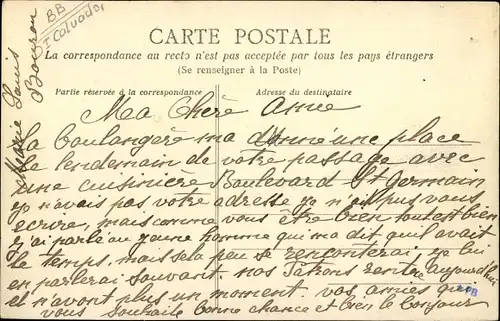 BB
Calvados
Marie Louis
CARTE POSTALE
La correspondance au recto n'est pas acceptée par tous les pays étrangers
(Se renseigner à la Poste)
Partie réservée à la correspondance
Adresse du destinataire
Ma Chère Amie
la boulangère ma donné une place
le lendemain de votre passage avec
une cuisinière Boulevard St Germain
je n'avais pas votre adresse je n'ai pus vous
ecrire, mais comme vous être bien tout est bien
j'ai parlé au jeune homme qui ma dit qu'il avait
le temps. mais sela peu se rencontrerai je lui
en parlerai souvant nos Patrons rentre aujourd'hui
et n'avont plus un moment. vos amies qui
vous souhaite bonne chance et bien le bonjour